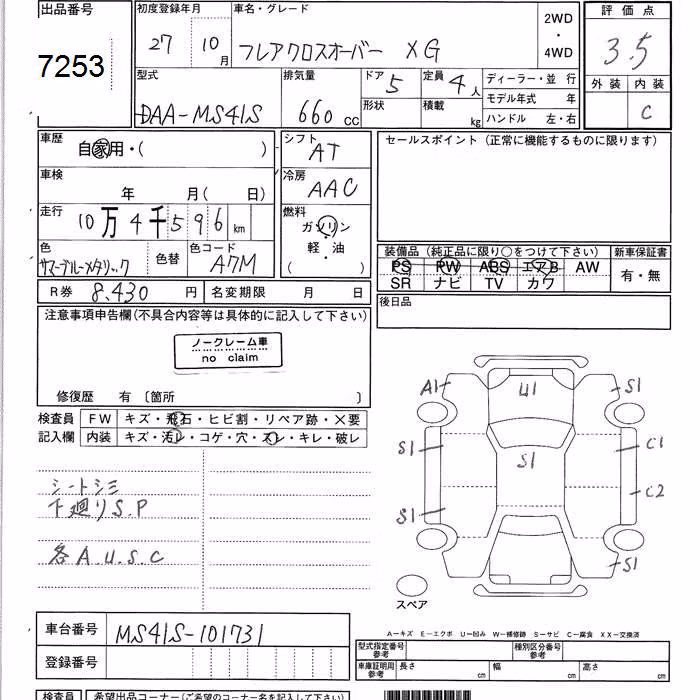 出品番号
7253
初度登録年月
27 10月
車名・グレード
フレアクロスオーバー XG
2WD
・
4WD
評価点
3.5
外装 内装
C
型式
DAA-MS41S
排気量
660 cc
ドア 5
形状
定員 4人
積載 kg
ディーラー・並 行
モデル年式 年
ハンドル 左・右
車歴
自家用・( )
シフト
AT
セールスポイント (正常に機能するものに限ります)
車検
年 月( 日)
冷房
AAC
走行
10万4千596 km
燃料
ガソリン
軽・油
( )
色
サマーブルーメタリック
色替
色コード
A7M
装備品 (純正品に限り○をつけて下さい)
PS PW ABS エアB AW
SR ナビ TV カワ
新車保証書
有・無
R券 8,430 円
名変期限 月 日
後日品
注意事項申告欄(不具合内容等は具体的に記入して下さい)
ノークレーム車
no claim
修復歴 有 〔箇所 〕
検査員
記入欄
FW キズ・飛石・ヒビ割・リペア跡・×要
内装 キズ・汚レ・コゲ・穴・スレ・キレ・破レ
シートシミ
下廻りS.P
各A.U.S.C
A1
U1
S1
S1
S1
C1
C2
S1
S1
スペア
車台番号
MS41S-101731
登録番号
A―キズ E―エクボ U―凹み W―補修跡 S―サビ C―腐食 XX―交換済
型式指定番号
参考
種別区分番号
参考
車庫証明用
参考
長さ cm
幅 cm
高さ cm
検査員
希望出品コーナー(ご希望のコーナー名を記入して下さい)